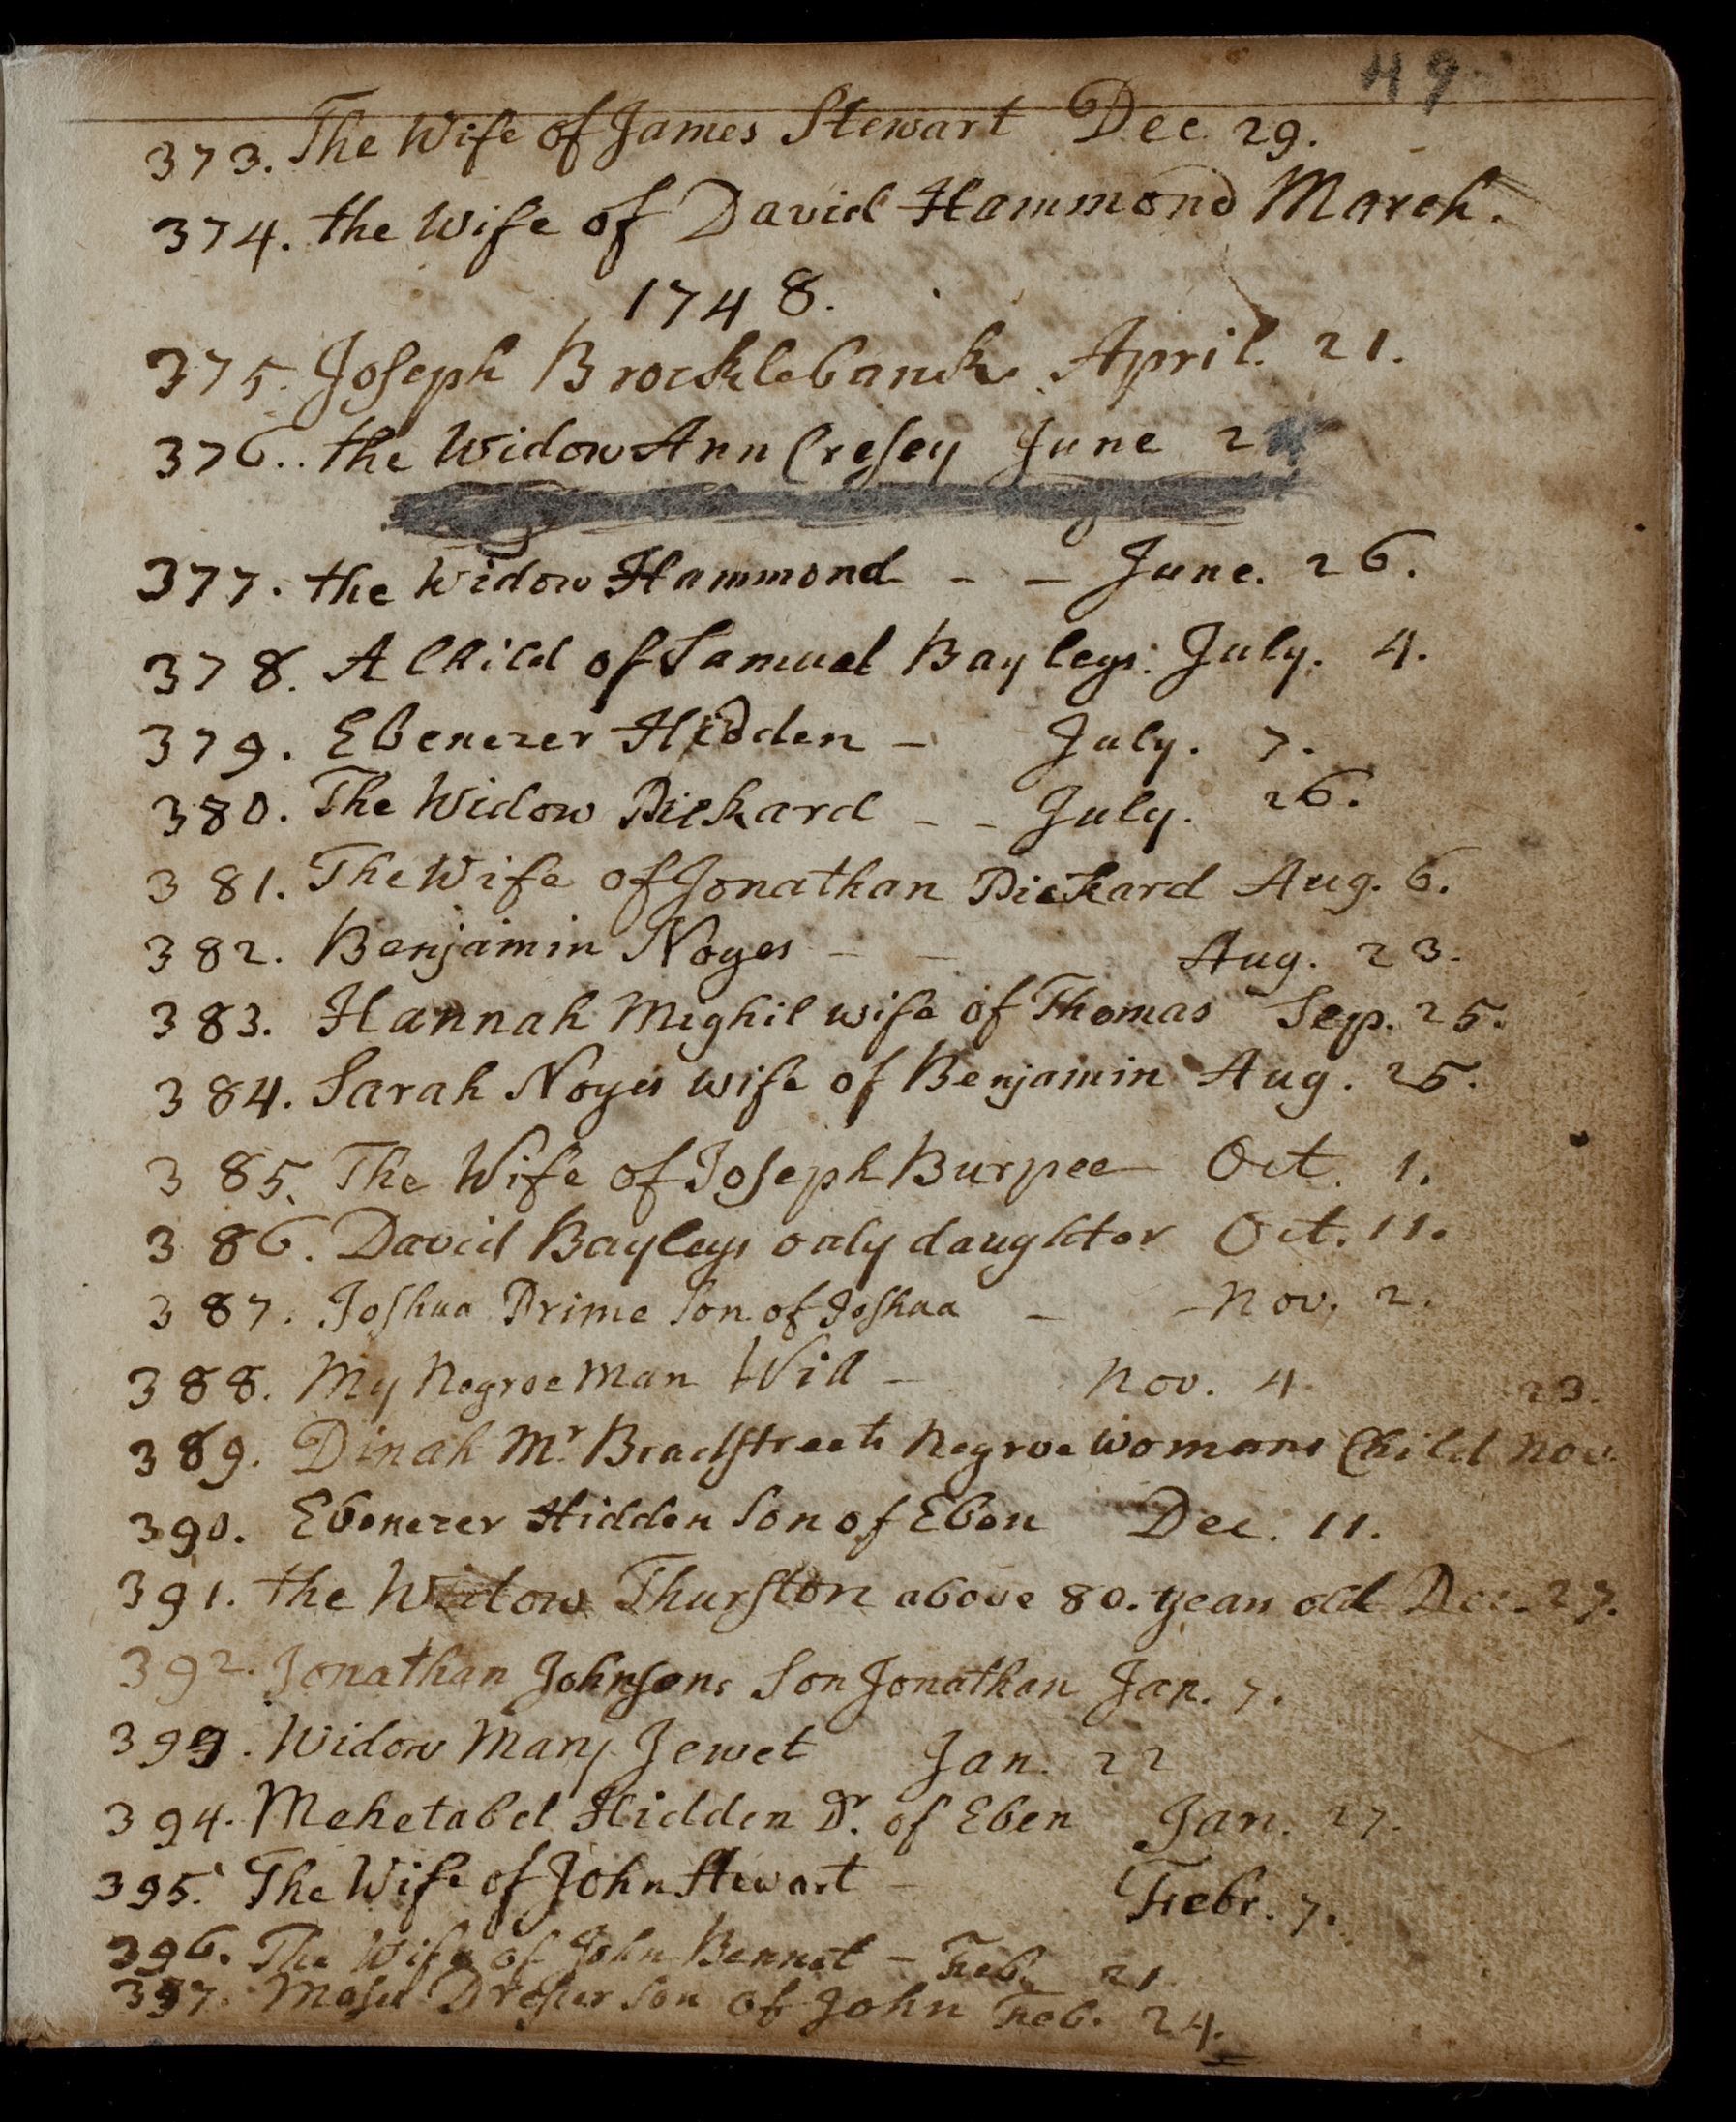 49
373. The Wife of James Stewart Dec 29.
374. the Wife of David Hammond March.
1748.
375. Joseph Brocklebank April. 21.
376.. the Widow Ann Cresey June 2
377. the Widow Hammond - - June. 26.
378. A Child of Samuel Bayleys. July. 4.
379. Ebenezer Hidden - July. 7.
380. The Widow Pickard - - July. 26.
381. The Wife of Jonathan Pickard Aug. 6.
382. Benjamin Noyes - - Aug. 23.
383. Hannah Mighil wife of Thomas Sep. 25.
384. Sarah Noyes wife of Benjamin Aug. 25.
385. The Wife of Joseph Burpee Oct. 1.
386. David Bayleys only daughter Oct. 11.
387. Joshua Prime Son of Joshua - - Nov. 2.
388. My Negroe Man Will - Nov. 4.
389. Dinah Mr. Bradstreets Negroe Womans Child Nov. 23.
390. Ebenezer Hidden Son of Eben Dec. 11.
391. the Widow Thurston above 80. years old Dec. 27.
392. Jonathan Johnsons Son Jonathan Jan. 7.
393. Widow Mary Jewet Jan. 22
394. Mehetabel Hidden Dr. of Eben Jan. 27.
395. The Wife of John Stewart - Febr. 7.
396. The Wife of John Bennet - Feb. 21
397. Moses Dresser Son of John Feb. 24.